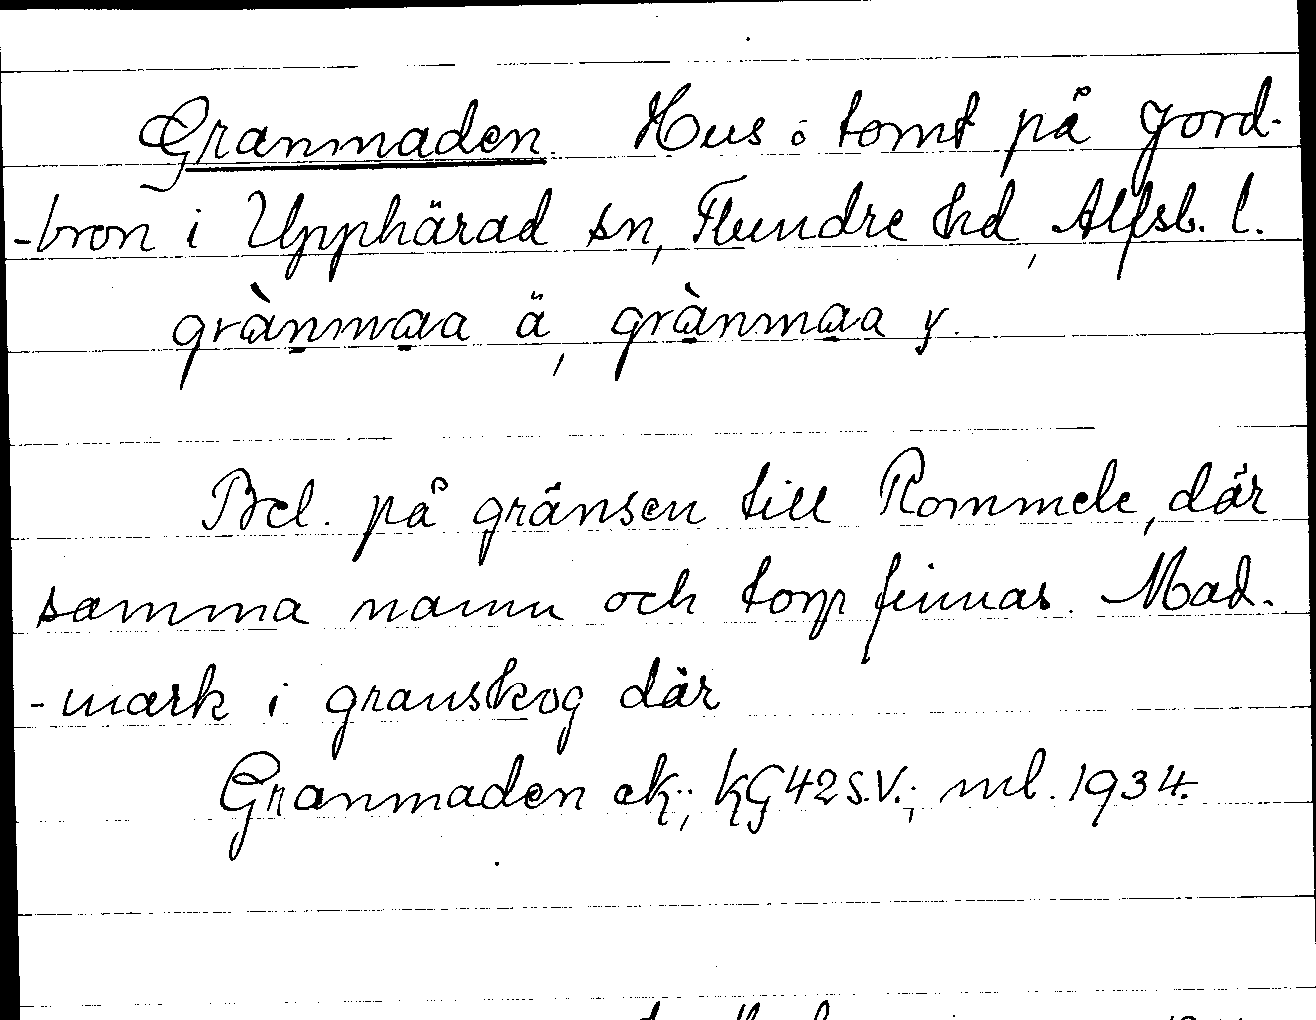 Granmaden. Hus o tomt på Jord-
-bron i Upphärad sn, Flundre hd, Alfsb. l.
grànmaa ä, grànmaa y.
Bel. på gränsen till Rommele, där
samma namn och torp finnas. Mad-
-mark i granskog där
Granmaden ek.; kG42S.V.; ml. 1934.